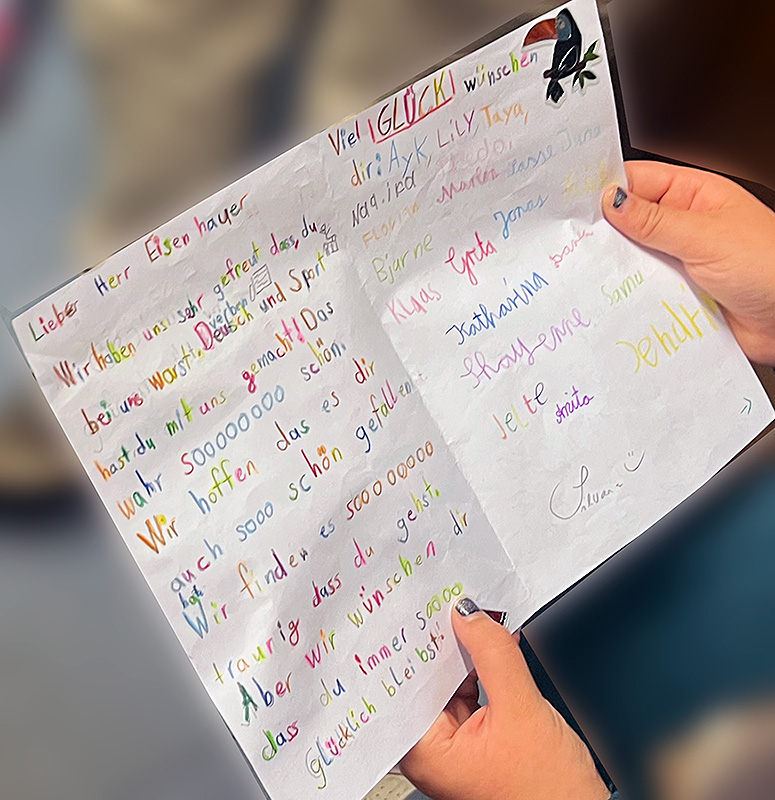 Lieber Herr Eisenhauer
Wir haben uns sehr gefreut dass, du
bei uns warst. Deutsch und Sport
hast du mit uns gemacht! Das
wahr sooooooooo schön.
Wir hoffen das es dir
auch sooo schön gefallen
hat.
Wir finden es sooooooooo
traurig dass du gehst.
Aber wir wünschen dir
dass du immer sooooo
Glücklich bleibst!
Viel GLÜCK! wünschen
dir: Ayk, LiLY, Taya,
Florian Marlen Lasse June
Bjarne
Klaas Greta Jonas
Katharina
Shayenne Samu
Jelte Anita